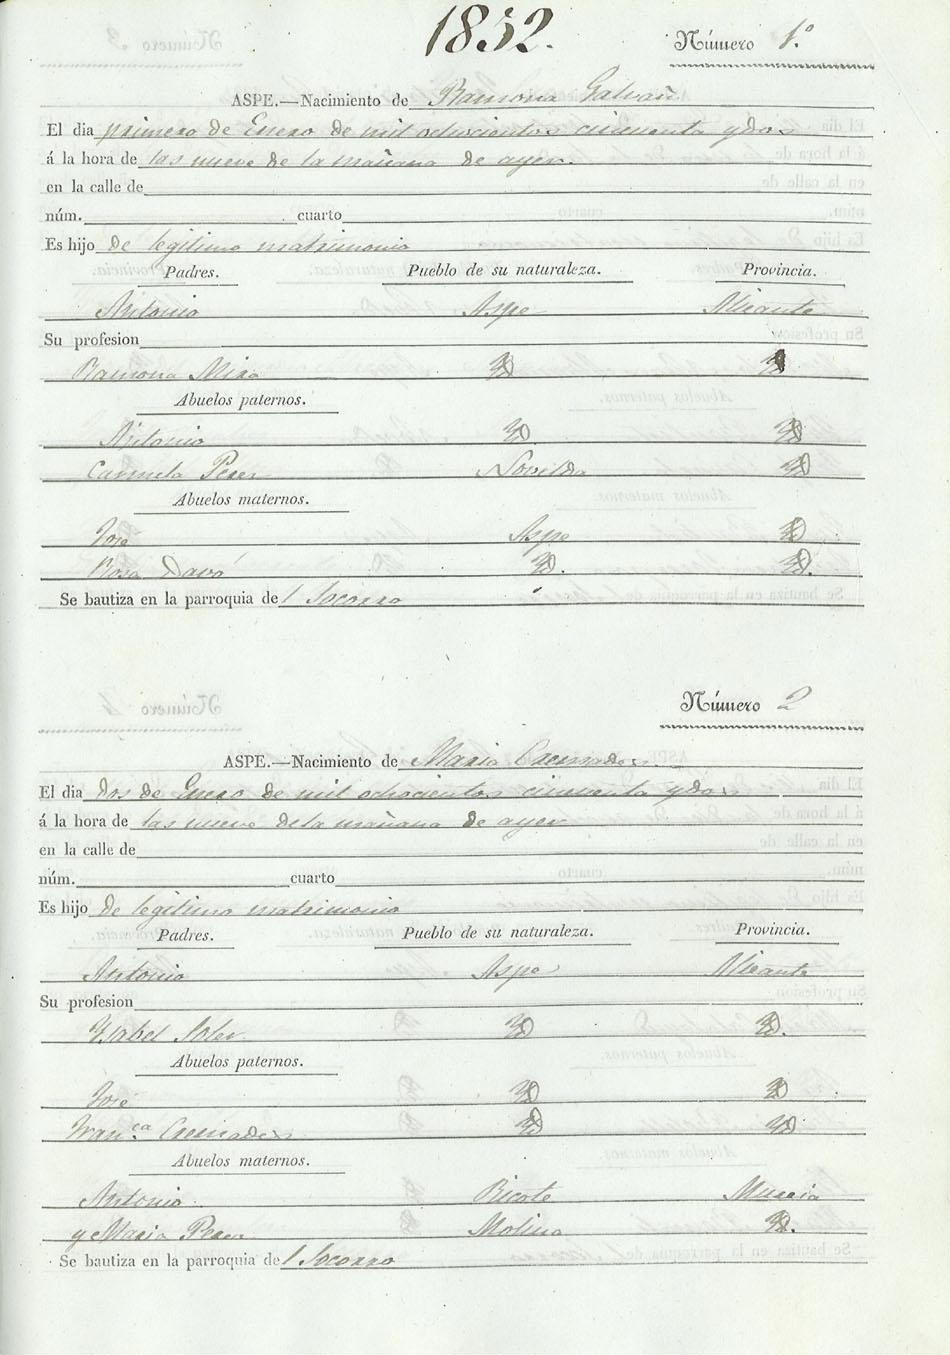 1852.
Número 1.º
ASPE.—Nacimiento de Ramona Galvañ
El dia primero de Enero de mil ochocientos cincuenta y dos
á la hora de las nueve de la mañana de ayer.
en la calle de
núm. cuarto
Es hijo de legitimo matrimonio
Padres. Pueblo de su naturaleza. Provincia.
Antonio Aspe Alicante
Su profesion
Ramona Mira YD YD
Abuelos paternos.
Antonio YD YD
Carmela Perez Novelda YD
Abuelos maternos.
José Aspe YD
Rosa Davó YD. YD.
Se bautiza en la parroquia de l Socorro
Número 2
ASPE.—Nacimiento de Maria Cremades
El dia dos de Enero de mil ochocientos cincuenta y dos
á la hora de las nueve de la mañana de ayer
en la calle de
núm. cuarto
Es hijo de legitimo matrimonio
Padres. Pueblo de su naturaleza. Provincia.
Antonio Aspe Alicante
Su profesion
Ysabel Soler YD YD.
Abuelos paternos.
José YD YD
Fran.ca Cremades YD YD
Abuelos maternos.
Antonio Ricote Murcia
y Maria Perez Molina YD.
Se bautiza en la parroquia de l Socorro